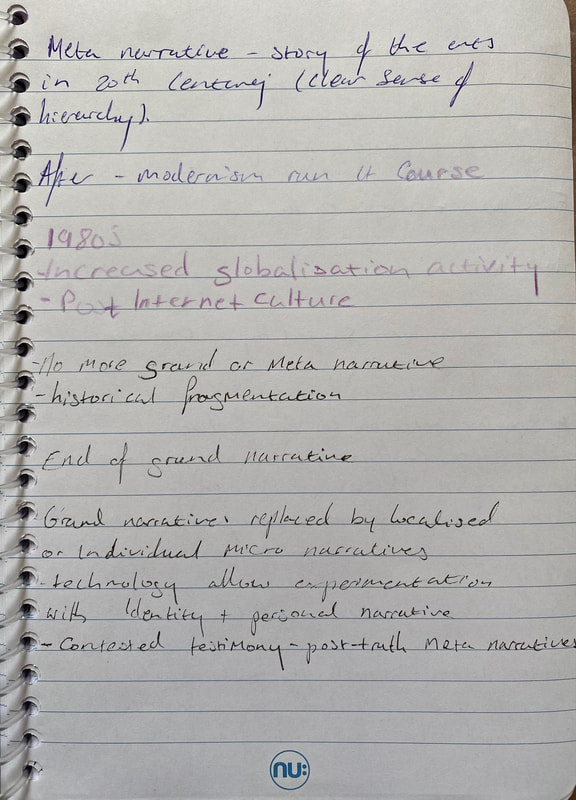 Meta narrative - story of the arts
in 20th Century (clear sense of
hierarchy).
After - modernism run it Course
1980s
-Increased globalisation activity
- Post Internet Culture
-No more grand or Meta narrative
- historical fragmentation
End of grand narrative
Grand narratives replaced by localised
or Individual micro narratives
- technology allow experimentation
with Identity + personal narrative
- Contested testimony - post-truth Meta narratives
nu: